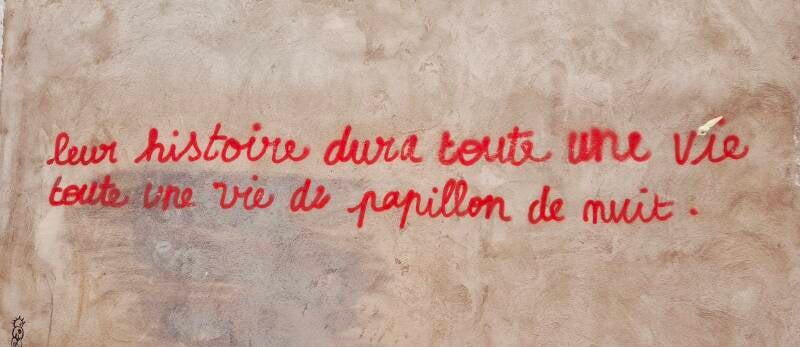 leur histoire dura toute une vie
toute une vie de papillon de nuit.